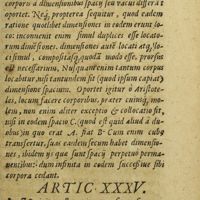 corpora à dimensionibus spacij seu vacui differat
oportet. Neq; propterea sequitur, quod eadem
ratione quodlibet dimensiones in eodem erunt lo-
co: inconuenit enim simul duplices esse locato-
rum dimēsiones. dimensiones autē locati atq; lo-
ci simul, compositasq; quodā modo esse, prorsus
est necessarium, Neque enim tantum corpus
locabitur, nisi tantundem sit (quod ipsum capiat)
dimensione spacium. Oportet igitur ô Aristote-
les, locum facere corporibus, prater cuiusq; mo-
lem, non enim aliter exceptio & collocatio fit,
nisi in eodem spacio C. (quod est quid aliud à duo-
bus) in quo erat A. fiat B. Cum enim cubū
transfertur, suas easdem secum habet dimensio-
nes, ibidem vs que sunt spacij perpetuò perma-
nentibus: dum infinita in eodem successiue sibi
corpora cedant.
ARTIC. XXXV.